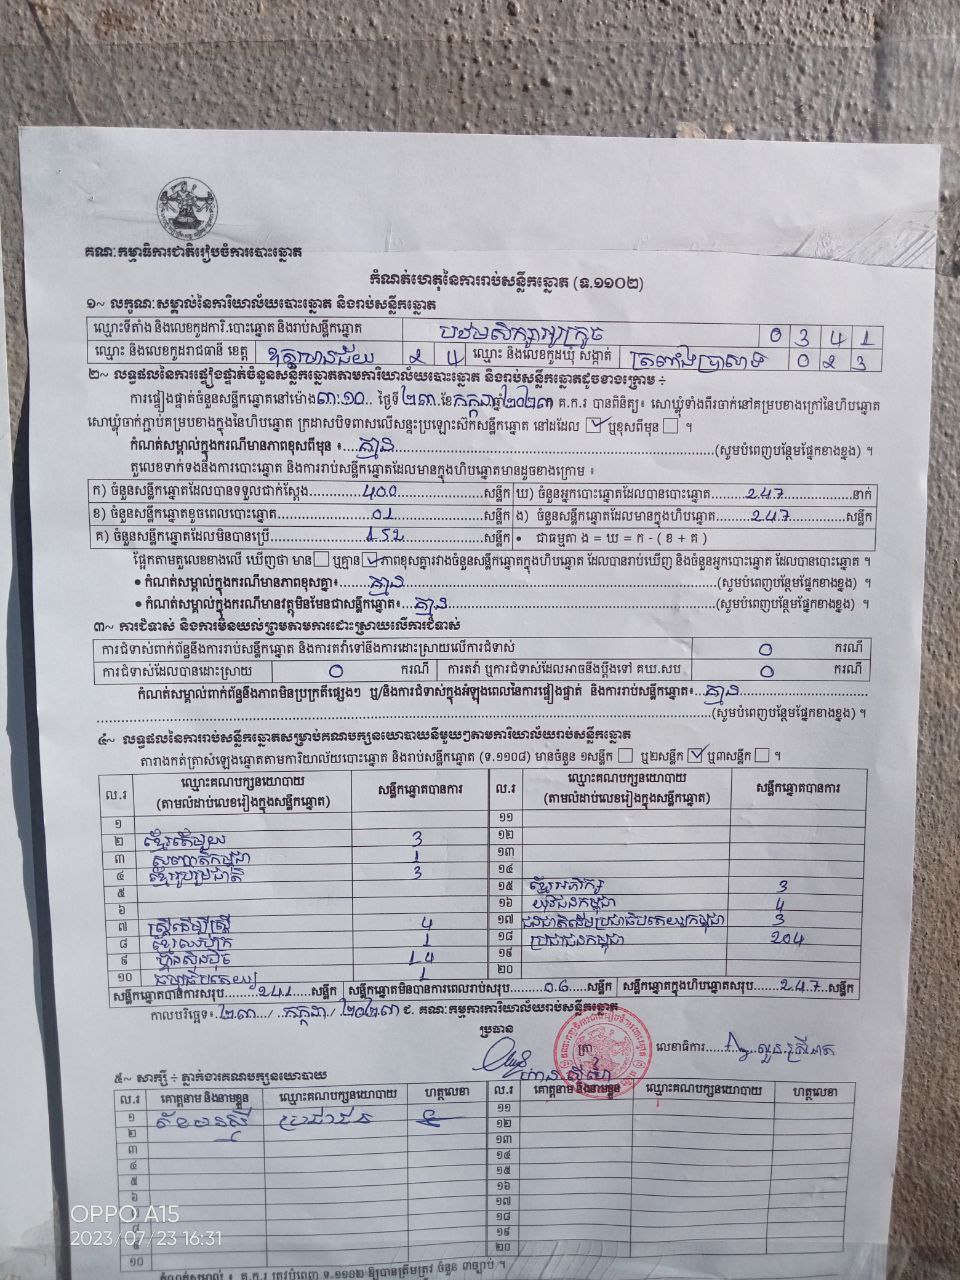 គណៈកម្មាធិការជាតិរៀបចំការបោះឆ្នោត
កំណត់ហេតុនៃការរាប់សន្លឹកឆ្នោត (ទ.១១០២)
១~ លក្ខណៈសម្គាល់នៃការិយាល័យបោះឆ្នោត និងរាប់សន្លឹកឆ្នោត
ឈ្មោះទីតាំង និងលេខកូដការិ.បោះឆ្នោត និងរាប់សន្លឹកឆ្នោត បឋមសិក្សាអូរក្រូច 0 3 4 1
ឈ្មោះ និងលេខកូដរាជធានី ខេត្ត ឧត្តរមានជ័យ ២ 4 ឈ្មោះ និងលេខកូដឃុំ សង្កាត់ ត្រពាំងប្រាសាទ 0 ២ 3
២~ លទ្ធផលនៃការផ្ទៀងផ្ទាត់ចំនួនសន្លឹកឆ្នោតតាមការិយាល័យបោះឆ្នោត និងរាប់សន្លឹកឆ្នោតដូចខាងក្រោម ÷
ការផ្ទៀងផ្ទាត់ចំនួនសន្លឹកឆ្នោតនៅម៉ោង ៣:១០ ថ្ងៃទី ២៣ ខែ កក្កដា ឆ្នាំ ២០២៣ គ.ក.រ បានពិនិត្យ៖ សោឃ្លុំទាំងពីរចាក់នៅគម្របខាងក្រៅនៃហិបឆ្នោត
សោឃ្លុំចាក់ភ្ជាប់គម្របខាងក្នុងនៃហិបឆ្នោត ក្រដាសបិទពាសលើសន្ទះប្រឡោះស៊កសន្លឹកឆ្នោត នៅដដែល ☑ ឬខុសពីមុន ☐ ។
កំណត់សម្គាល់ក្នុងករណីមានភាពខុសពីមុន ៖ គ្មាន (សូមបំពេញបន្ថែមផ្នែកខាងខ្នង) ។
តួលេខទាក់ទងនឹងការបោះឆ្នោត និងការរាប់សន្លឹកឆ្នោតដែលមានក្នុងហិបឆ្នោតមានដូចខាងក្រោម ៖
ក) ចំនួនសន្លឹកឆ្នោតដែលបានទទួលជាក់ស្តែង 400 សន្លឹក ឃ) ចំនួនអ្នកបោះឆ្នោតដែលបានបោះឆ្នោត 247 នាក់
ខ) ចំនួនសន្លឹកឆ្នោតខូចពេលបោះឆ្នោត 01 សន្លឹក ង) ចំនួនសន្លឹកឆ្នោតដែលមានក្នុងហិបឆ្នោត 247 សន្លឹក
គ) ចំនួនសន្លឹកឆ្នោតដែលមិនបានប្រើ 152 សន្លឹក • ជាធម្មតា ង = ឃ = ក - ( ខ + គ )
ផ្អែកតាមតួលេខខាងលើ ឃើញថា មាន ☐ ឬគ្មាន ☑ ភាពខុសគ្នារវាងចំនួនសន្លឹកឆ្នោតក្នុងហិបឆ្នោត ដែលបានរាប់ឃើញ និងចំនួនអ្នកបោះឆ្នោត ដែលបានបោះឆ្នោត ។
• កំណត់សម្គាល់ក្នុងករណីមានភាពខុសគ្នា៖ គ្មាន (សូមបំពេញបន្ថែមផ្នែកខាងខ្នង) ។
• កំណត់សម្គាល់ក្នុងករណីមានវត្ថុមិនមែនជាសន្លឹកឆ្នោត៖ គ្មាន (សូមបំពេញបន្ថែមផ្នែកខាងខ្នង) ។
៣~ ការជំទាស់ និងការមិនយល់ព្រមតាមការដោះស្រាយលើការជំទាស់
ការជំទាស់ពាក់ព័ន្ធនឹងការរាប់សន្លឹកឆ្នោត និងការតវ៉ាទៅនឹងការដោះស្រាយលើការជំទាស់ 0 ករណី
ការជំទាស់ដែលបានដោះស្រាយ 0 ករណី ការតវ៉ា ឬការជំទាស់ដែលអាចនឹងប្តឹងទៅ គឃ.សប 0 ករណី
កំណត់សម្គាល់ពាក់ព័ន្ធនឹងភាពមិនប្រក្រតីផ្សេងៗ ឬ/និងការជំទាស់ក្នុងអំឡុងពេលនៃការផ្ទៀងផ្ទាត់ និងការរាប់សន្លឹកឆ្នោត៖ គ្មាន
(សូមបំពេញបន្ថែមផ្នែកខាងខ្នង) ។
៤~ លទ្ធផលនៃការរាប់សន្លឹកឆ្នោតសម្រាប់គណបក្សនយោបាយនីមួយៗតាមការិយាល័យរាប់សន្លឹកឆ្នោត
តារាងកត់ត្រាសំឡេងឆ្នោតតាមការិយាល័យបោះឆ្នោត និងរាប់សន្លឹកឆ្នោត (ទ.១១០៨) មានចំនួន ១សន្លឹក ☐ ឬ២សន្លឹក ☑ ឬ៣សន្លឹក ☐ ។
ល.រ ឈ្មោះគណបក្សនយោបាយ (តាមលំដាប់លេខរៀងក្នុងសន្លឹកឆ្នោត) សន្លឹកឆ្នោតបានការ ល.រ ឈ្មោះគណបក្សនយោបាយ (តាមលំដាប់លេខរៀងក្នុងសន្លឹកឆ្នោត) សន្លឹកឆ្នោតបានការ
១ ១១
២ ខ្មែរតែមួយ 3 ១២
៣ សញ្ជាតិកម្ពុជា 1 ១៣
៤ ខ្មែររួបរួមជាតិ 3 ១៤
៥ ១៥ ខ្មែរអភិរក្ស 3
៦ ១៦ យុវជនកម្ពុជា 4
៧ ស្ត្រីដើម្បីស្ត្រី 4 ១៧ ជនជាតិដើមប្រជាធិបតេយ្យកម្ពុជា 3
៨ 1 ១៨ ប្រជាជនកម្ពុជា 204
៩ ហ្វ៊ុនស៊ិនប៉ិច 14 ១៩
១០ 1 ២០
សន្លឹកឆ្នោតបានការសរុប 241 សន្លឹក សន្លឹកឆ្នោតមិនបានការពេលរាប់សរុប 06 សន្លឹក សន្លឹកឆ្នោតក្នុងហិបឆ្នោតសរុប 247 សន្លឹក
កាលបរិច្ឆេទ៖ ២៣ / កក្កដា / ២០២៣ ជ. គណៈកម្មការការិយាល័យរាប់សន្លឹកឆ្នោត
ប្រធាន ត្រា លេខាធិការ
៥~ សាក្សី ÷ ភ្នាក់ងារគណបក្សនយោបាយ
ល.រ គោត្តនាម និងនាមខ្លួន ឈ្មោះគណបក្សនយោបាយ ហត្ថលេខា ល.រ គោត្តនាម និងនាមខ្លួន ឈ្មោះគណបក្សនយោបាយ ហត្ថលេខា
១ ប្រជាជន ១១
២ ១២
៣ ១៣
៤ ១៤
៥ ១៥
៦ ១៦
១៧
១៨
១៩
១០ ២០
កំណត់សម្គាល់ ៖ គ.ក.រ ត្រូវបំពេញ ទ.១១០២ ឱ្យបានត្រឹមត្រូវ ចំនួន ៣ច្បាប់ ។
OPPO A15
2023/07/23 16:31